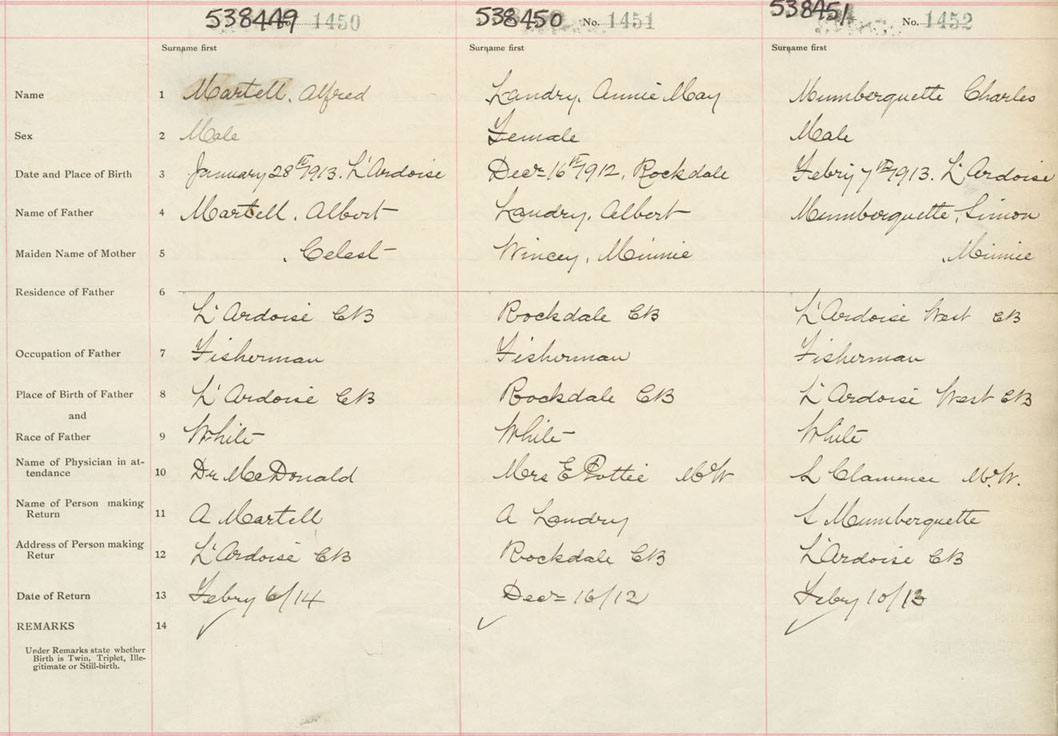 538449 No. 1450 538450 No. 1451 538451 No. 1452
Surname first Surname first Surname first
Name 1 Martell, Alfred Landry, Annie May Mumberquette Charles
Sex 2 Male Female Male
Date and Place of Birth 3 January 28th 1913. L'Ardoise Decr 16th 1912, Rockdale Febry 7th 1913. L'Ardoise
Name of Father 4 Martell, Albert Landry, Albert Mumberquette, Simon
Maiden Name of Mother 5 , Celest Wincey, Minnie , Minnie
Residence of Father 6
L'Ardoise CB Rockdale CB L'Ardoise West CB
Occupation of Father 7 Fisherman Fisherman Fisherman
Place of Birth of Father 8 L'Ardoise CB Rockdale CB L'Ardoise West CB
and
Race of Father 9 White White White
Name of Physician in at-
tendance 10 Dr McDonald Mrs E Pottie MdW L Clamence Md.W.
Name of Person making
Return 11 A Martell A Landry S Mumberquette
Address of Person making
Retur 12 L'Ardoise CB Rockdale CB L'Ardoise CB
Date of Return 13 Febry 6/14 Decr 16/12 Febry 10/13
REMARKS 14
Under Remarks state whether
Birth is Twin, Triplet, Ille-
gitimate or Still-birth.